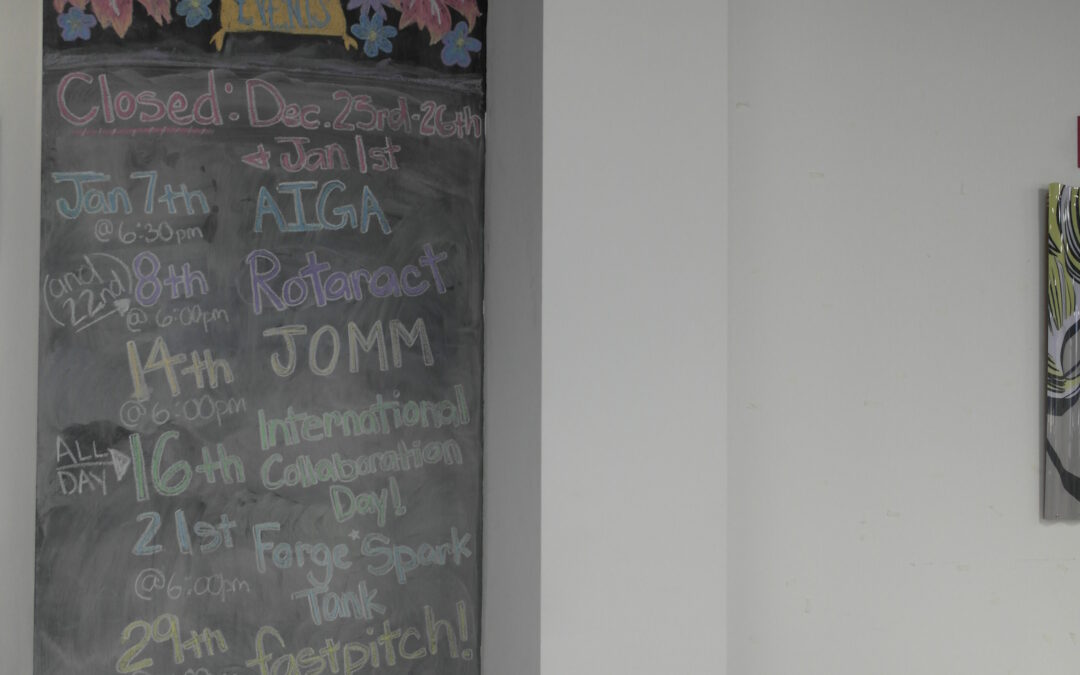 EVENTS
Closed: Dec. 25rd-26th
Jan 1st
Jan 7th AIGA
@ 6:30pm
(and 22nd) 8th Rotaract
@ 6:00pm
14th JOMM
@ 6:00pm
ALL DAY 16th International
Collaboration
Day!
21st Forge Spark
@ 6:00pm Tank
29th fastpitch!